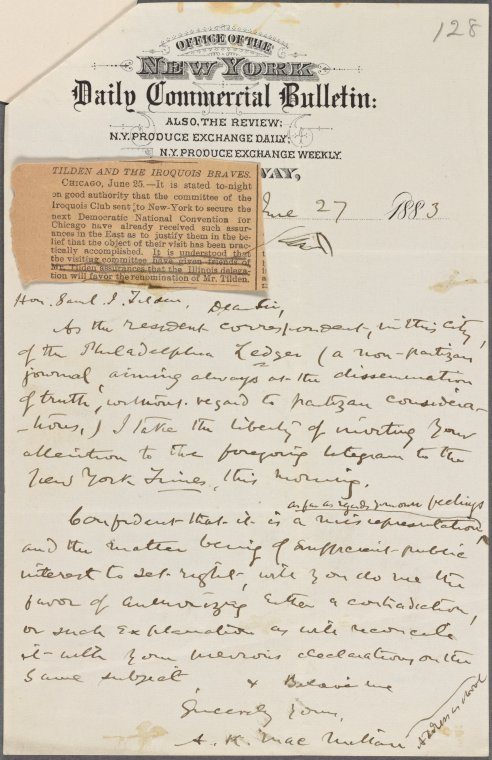 128
OFFICE OF THE
NEW YORK
Daily Commercial Bulletin:
ALSO, THE REVIEW;
N.Y. PRODUCE EXCHANGE DAILY;
N.Y. PRODUCE EXCHANGE WEEKLY.
WAY,
June 27 1883
TILDEN AND THE IROQUOIS BRAVES.
CHICAGO, June 25.—It is stated to-night
on good authority that the committee of the
Iroquois Club sent to New-York to secure the
next Democratic National Convention for
Chicago have already received such assur-
ances in the East as to justify them in the be-
lief that the object of their visit has been prac-
tically accomplished. It is understood that
the visiting committee have given friends of
Mr. Tilden assurances that the Illinois delega-
tion will favor the renomination of Mr. Tilden.
Hon. Saml. J. Tilden, Dear Sir,
As the resident correspondent, in this city,
of the Philadelphia Ledger (a non-partizan
journal, aiming always at the dissemination
of truth, without regard to partizan considera-
tions,) I take the liberty of inviting your
attention to the foregoing telegram to the
New York Times, this morning.
as far as regards your feelings
Confident that it is a misrepresentation,
and the matter being of sufficient public
interest to set right, will you do me the
favor of authorizing either a contradiction,
or such explanation as will reconcile
it with your previous declarations on the
same subject & Believe me
Sincerely Yours,
A. K. MacMillan
Address as above